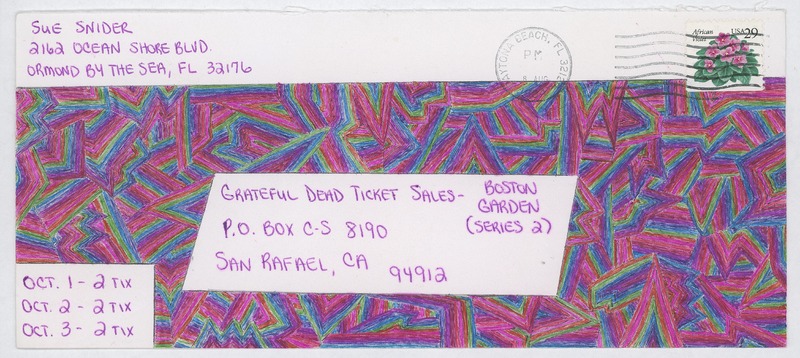 SUE SNIDER
2162 OCEAN SHORE BLVD.
ORMOND BY THE SEA, FL 32176
DAYTONA BEACH, FL
PM
AUG
African Violet
USA 29
GRATEFUL DEAD TICKET SALES- BOSTON GARDEN (SERIES 2)
P.O. BOX C-S 8190
SAN RAFAEL, CA 94912
OCT. 1 - 2 TIX
OCT. 2 - 2 TIX
OCT. 3 - 2 TIX